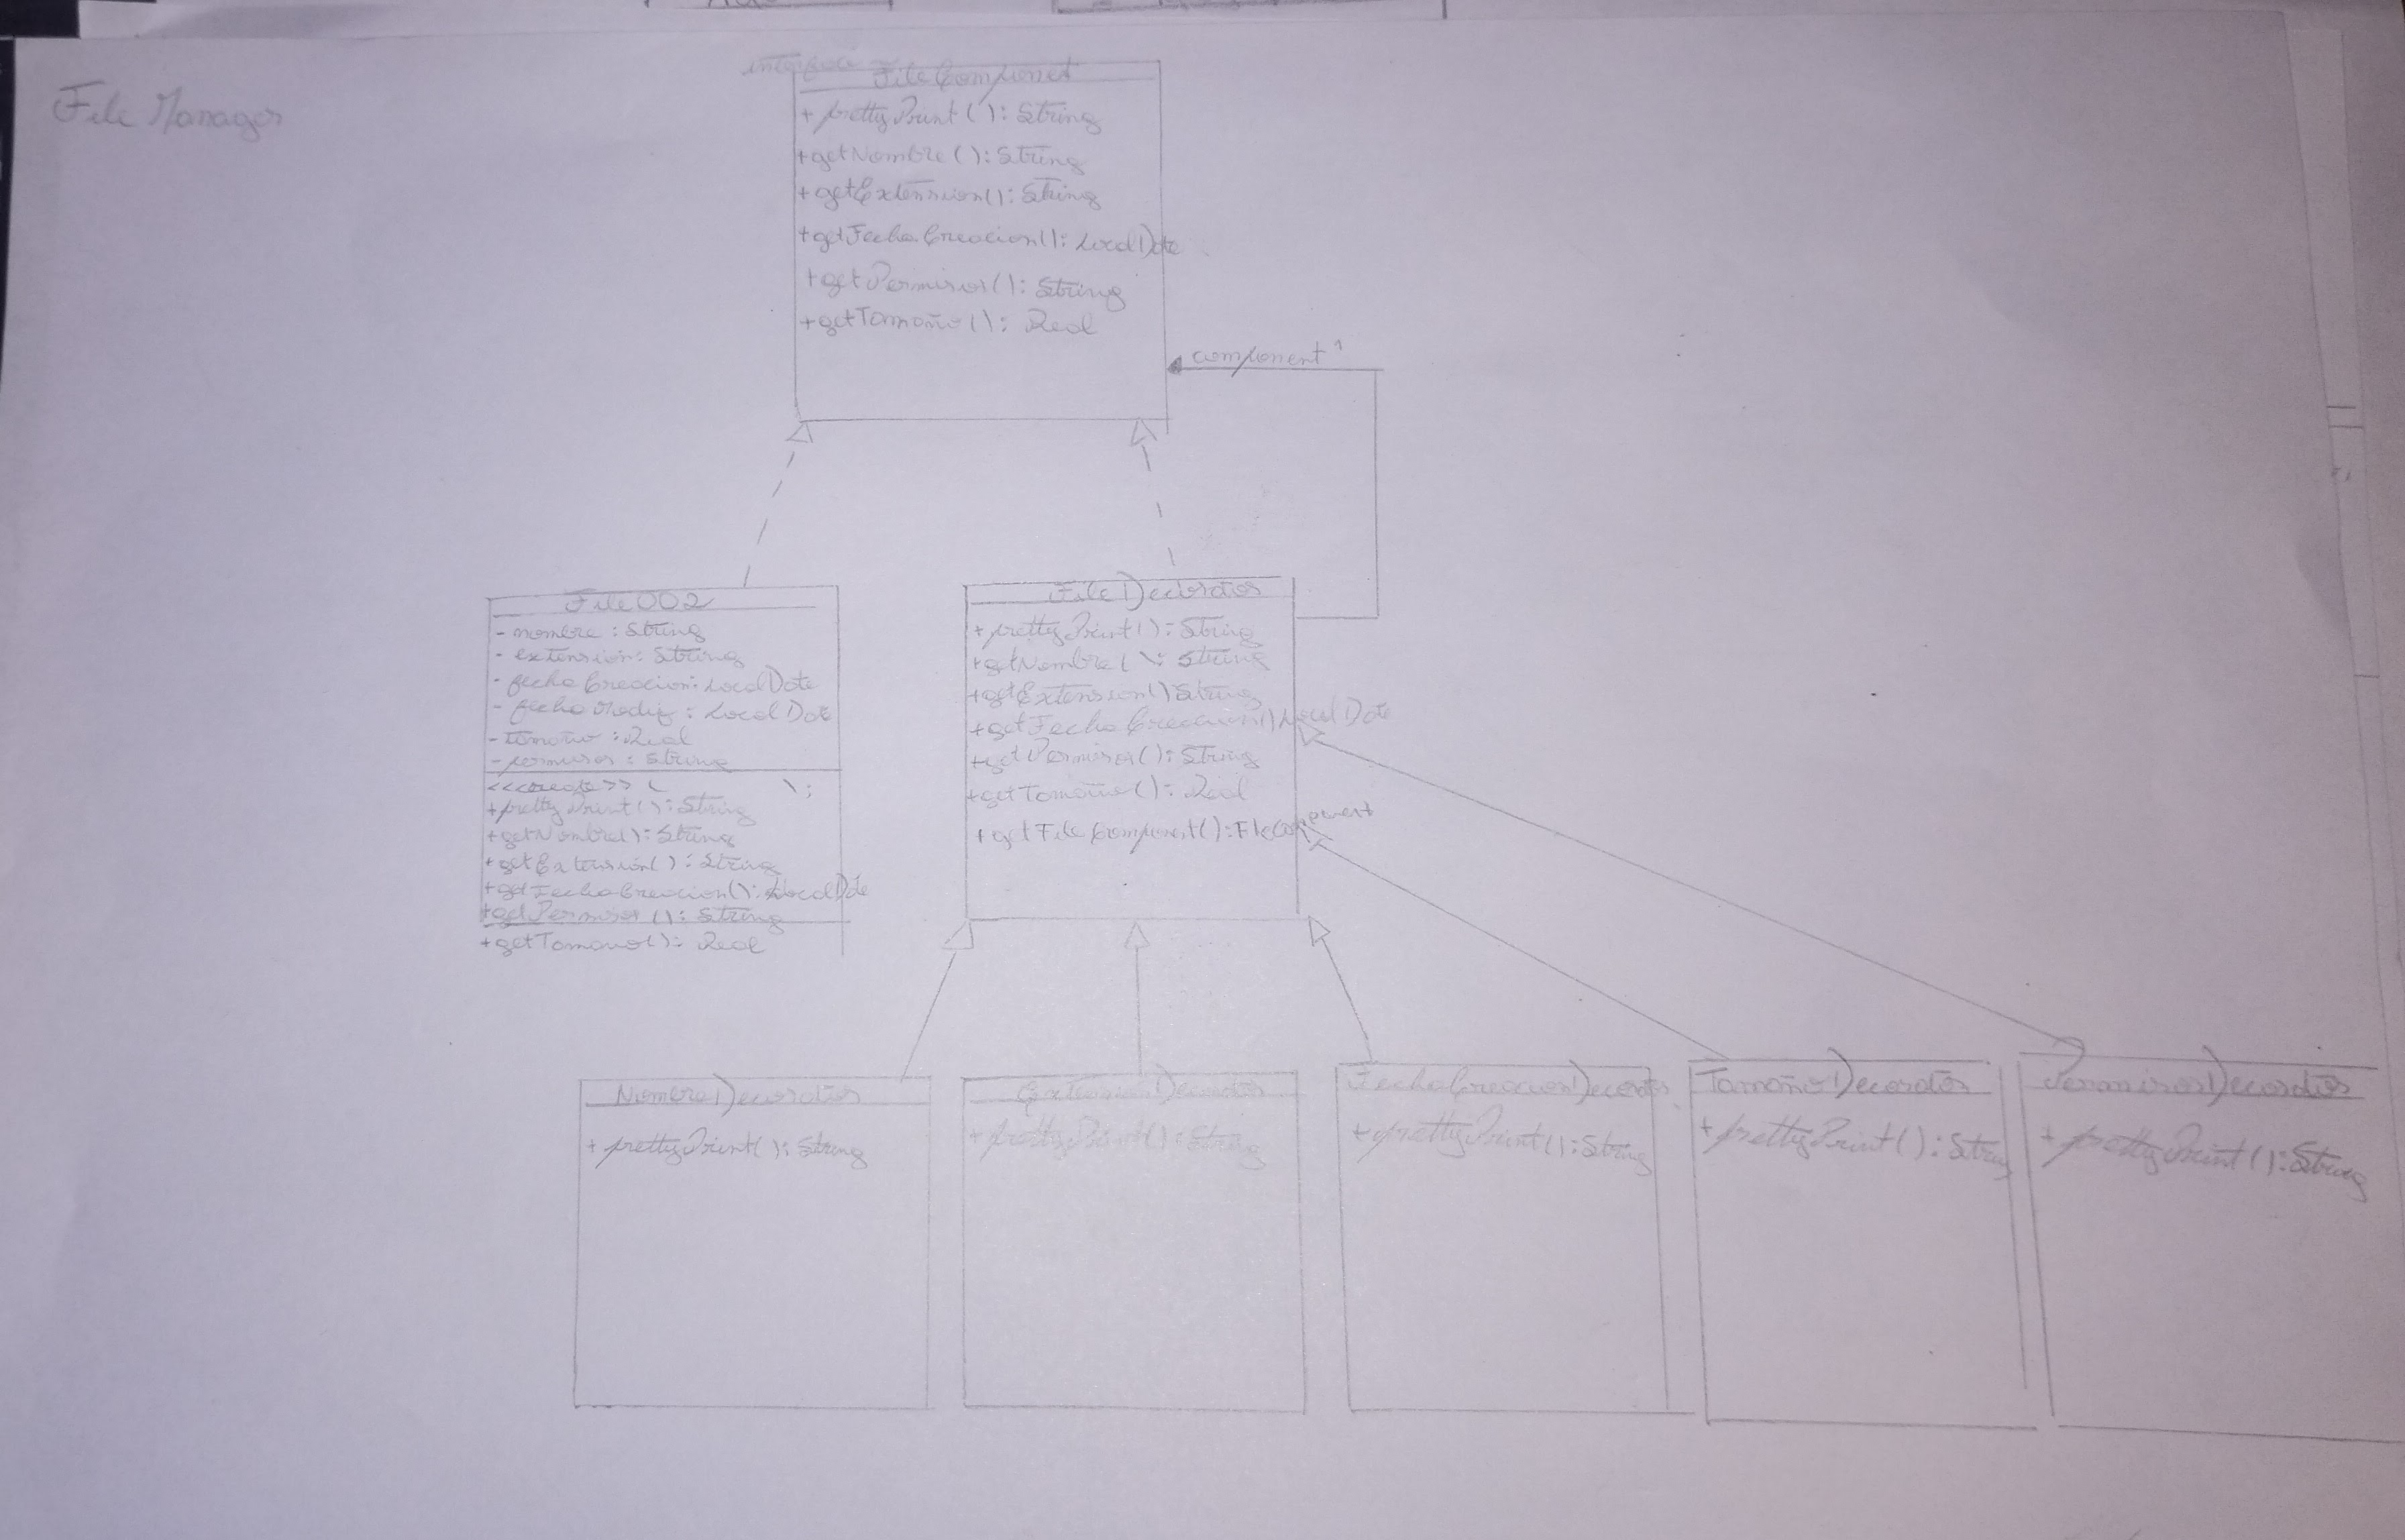 File Manager
interface
FileComponet
+ prettyPrint ( ): String
+getNombre ( ): String
+ getExtension(): String
+getFechaCreacion(): LocalDate
+getPermisos(): String
+getTamaño ( ): Real
component 1
File OO2
- nombre : String
- extension: String
- fechaCreacion: LocalDate
- fecha Modif : LocalDate
- tamaño : Real
- permisos : String
<<create>> ( );
+prettyPrint( ): String
+getNombre( ): String
+getExtension( ): String
+getFechaCreacion(): LocalDate
+getPermisos (): String
+getTamano(): Real
File Decorator
+ prettyPrint( ): String
+getNombre( ): String
+getExtension() String
+getFechaCreacion() LocalDate
+getPermisos(): String
+getTamaño( ): Real
+ getFileComponent(): FileComponent
NombreDecorator
+ prettyPrint( ): String
ExtensionDecorator
+ prettyPrint( ): String
FechaCreacionDecorator
+ prettyPrint(): String
TamañoDecorator
+ prettyPrint(): String
PermisosDecorator
+ prettyPrint(): String